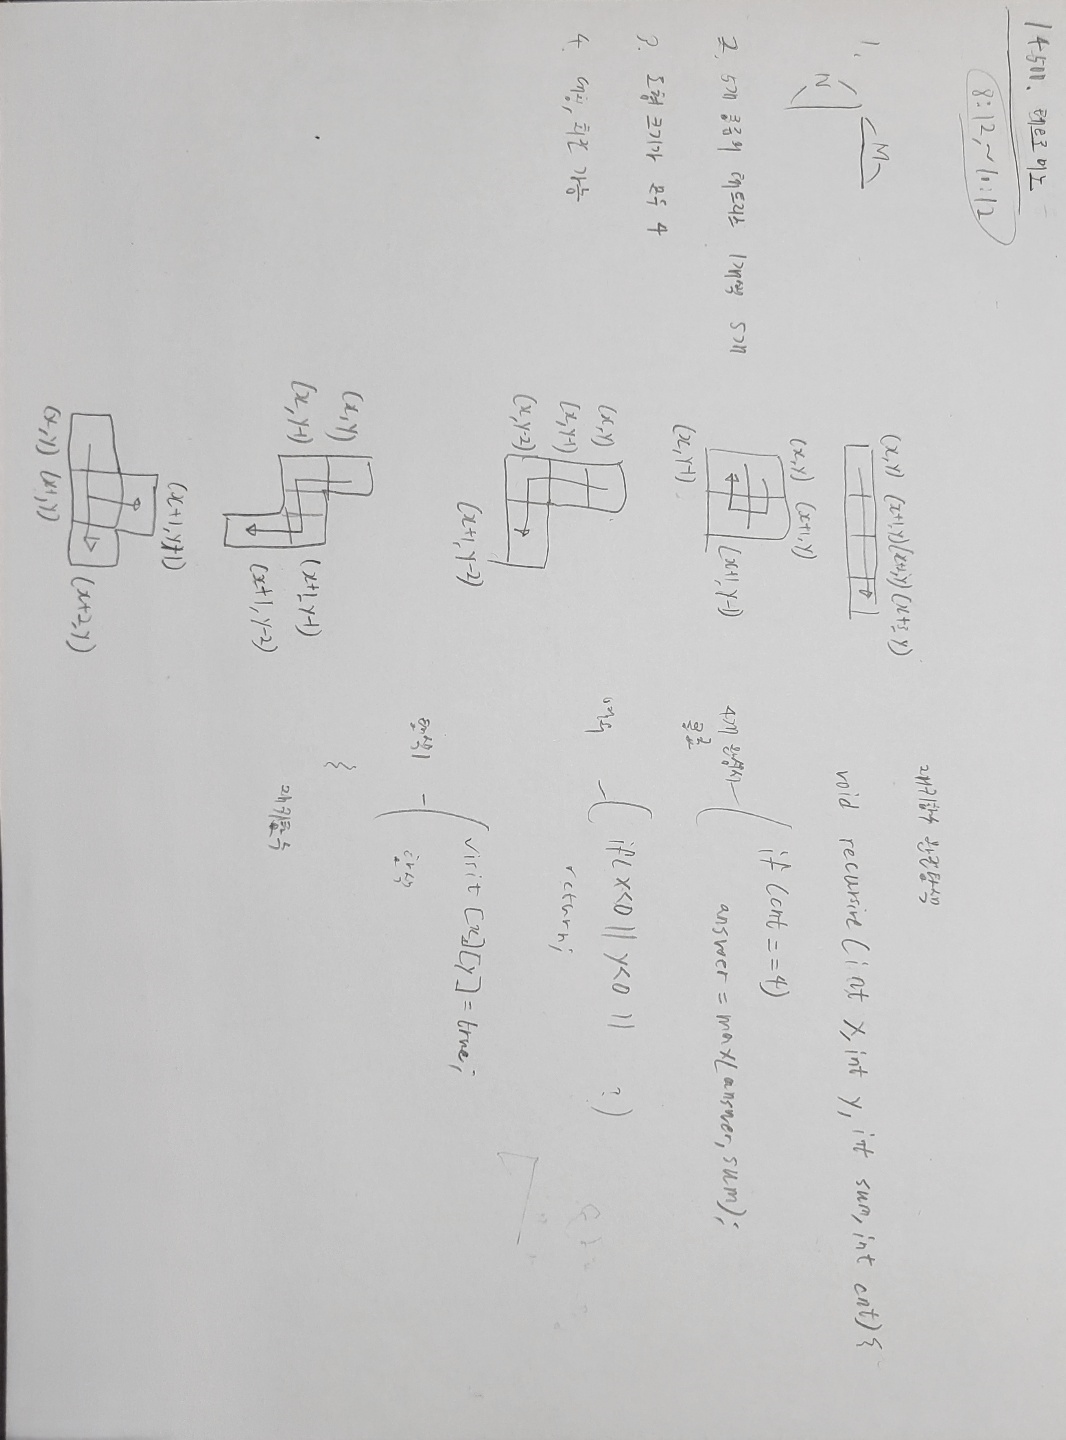 14500. 테트로미노
8:12~10:12
1.
N
M
2. 5개 종류의 테트로미노 1개씩 5개
3. 도형 크기가 모두 4
4. 대칭, 회전 가능
(x,y) (x+1,y) (x+2,y) (x+3,y)
(x,y) (x+1,y)
(x,y-1)
(x+1,y-1)
(x,y)
(x,y-1)
(x,y-2)
(x+1,y-2)
(x,y)
(x,y-1)
(x+1,y-1)
(x+1,y-2)
(x+1,y+1)
(x,y) (x+1,y)
(x+2,y)
void recursive(int x, int y, int sum, int cnt){
if(cnt==4)
answer = max(answer, sum);
if(x<0 || y<0 || ?)
return;
visit[x][y] = true;
}